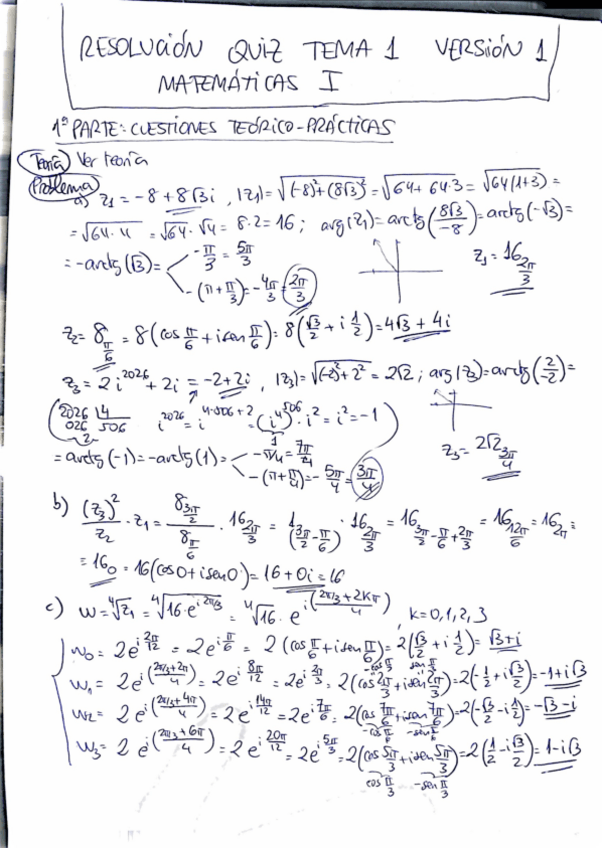 RESOLUCIÓN QUIZ TEMA 1 VERSIÓN 1
MATEMÁTICAS I
1ª PARTE: CUESTIONES TEÓRICO-PRÁCTICAS
Teoría Ver teoría
Problema
a) z₁ = -8 + 8√3i , |z₁| = √((-8)²+(8√3)²) = √(64+64·3) = √(64(1+3)) =
= √(64·4) = √64·√4 = 8·2 = 16 ; arg(z₁) = arctg(8√3/-8) = arctg(-√3) =
= -arctg(√3) = -π/3 = 5π/3
-(π+π/3) = -4π/3 = 2π/3
z₁ = 16_{2π/3}
z₂ = 8_{π/6} = 8(cos π/6 + i sen π/6) = 8(√3/2 + i 1/2) = 4√3 + 4i
z₃ = 2i^2026 + 2i = -2+2i , |z₃| = √((-2)²+2²) = 2√2 ; arg(z₃) = arctg(2/-2) =
(2026 |4 i^2026 = i^(4·506+2) = (i⁴)^506 · i² = i² = -1)
026 506
2
1
= arctg(-1) = -arctg(1) = -π/4 = 7π/4
-(π+π/4) = -5π/4 = 3π/4
z₃ = 2√2_{3π/4}
b) (z₃)²/z₂ · z₁ = 8_{3π/2}/8_{π/6} · 16_{2π/3} = 1_{(3π/2 - π/6)} · 16_{2π/3} = 16_{3π/2 - π/6 + 2π/3} = 16_{12π/6} = 16_{2π} =
= 16₀ = 16(cos0 + isen0) = 16 + 0i = 16
c) w = ⁴√z₁ = ⁴√(16·e^(i2π/3)) = ⁴√16 · e^(i((2π/3+2kπ)/4)) , k = 0,1,2,3
w₀ = 2e^(i 2π/12) = 2e^(i π/6) = 2(cos π/6 + i sen π/6) = 2(√3/2 + i 1/2) = √3+i
-cos π/3 sen π/3
w₁ = 2e^(i((2π/3+2π)/4)) = 2e^(i 8π/12) = 2e^(i 2π/3) = 2(cos 2π/3 + i sen 2π/3) = 2(-1/2 + i √3/2) = -1+i√3
w₂ = 2e^(i((2π/3+4π)/4)) = 2e^(i 14π/12) = 2e^(i 7π/6) = 2(cos 7π/6 + i sen 7π/6) = 2(-√3/2 - i 1/2) = -√3-i
-cos π/6 -sen π/6
w₃ = 2e^(i((2π/3+6π)/4)) = 2e^(i 20π/12) = 2e^(i 5π/3) = 2(cos 5π/3 + i sen 5π/3) = 2(1/2 - i √3/2) = 1-i√3
cos π/3 -sen π/3